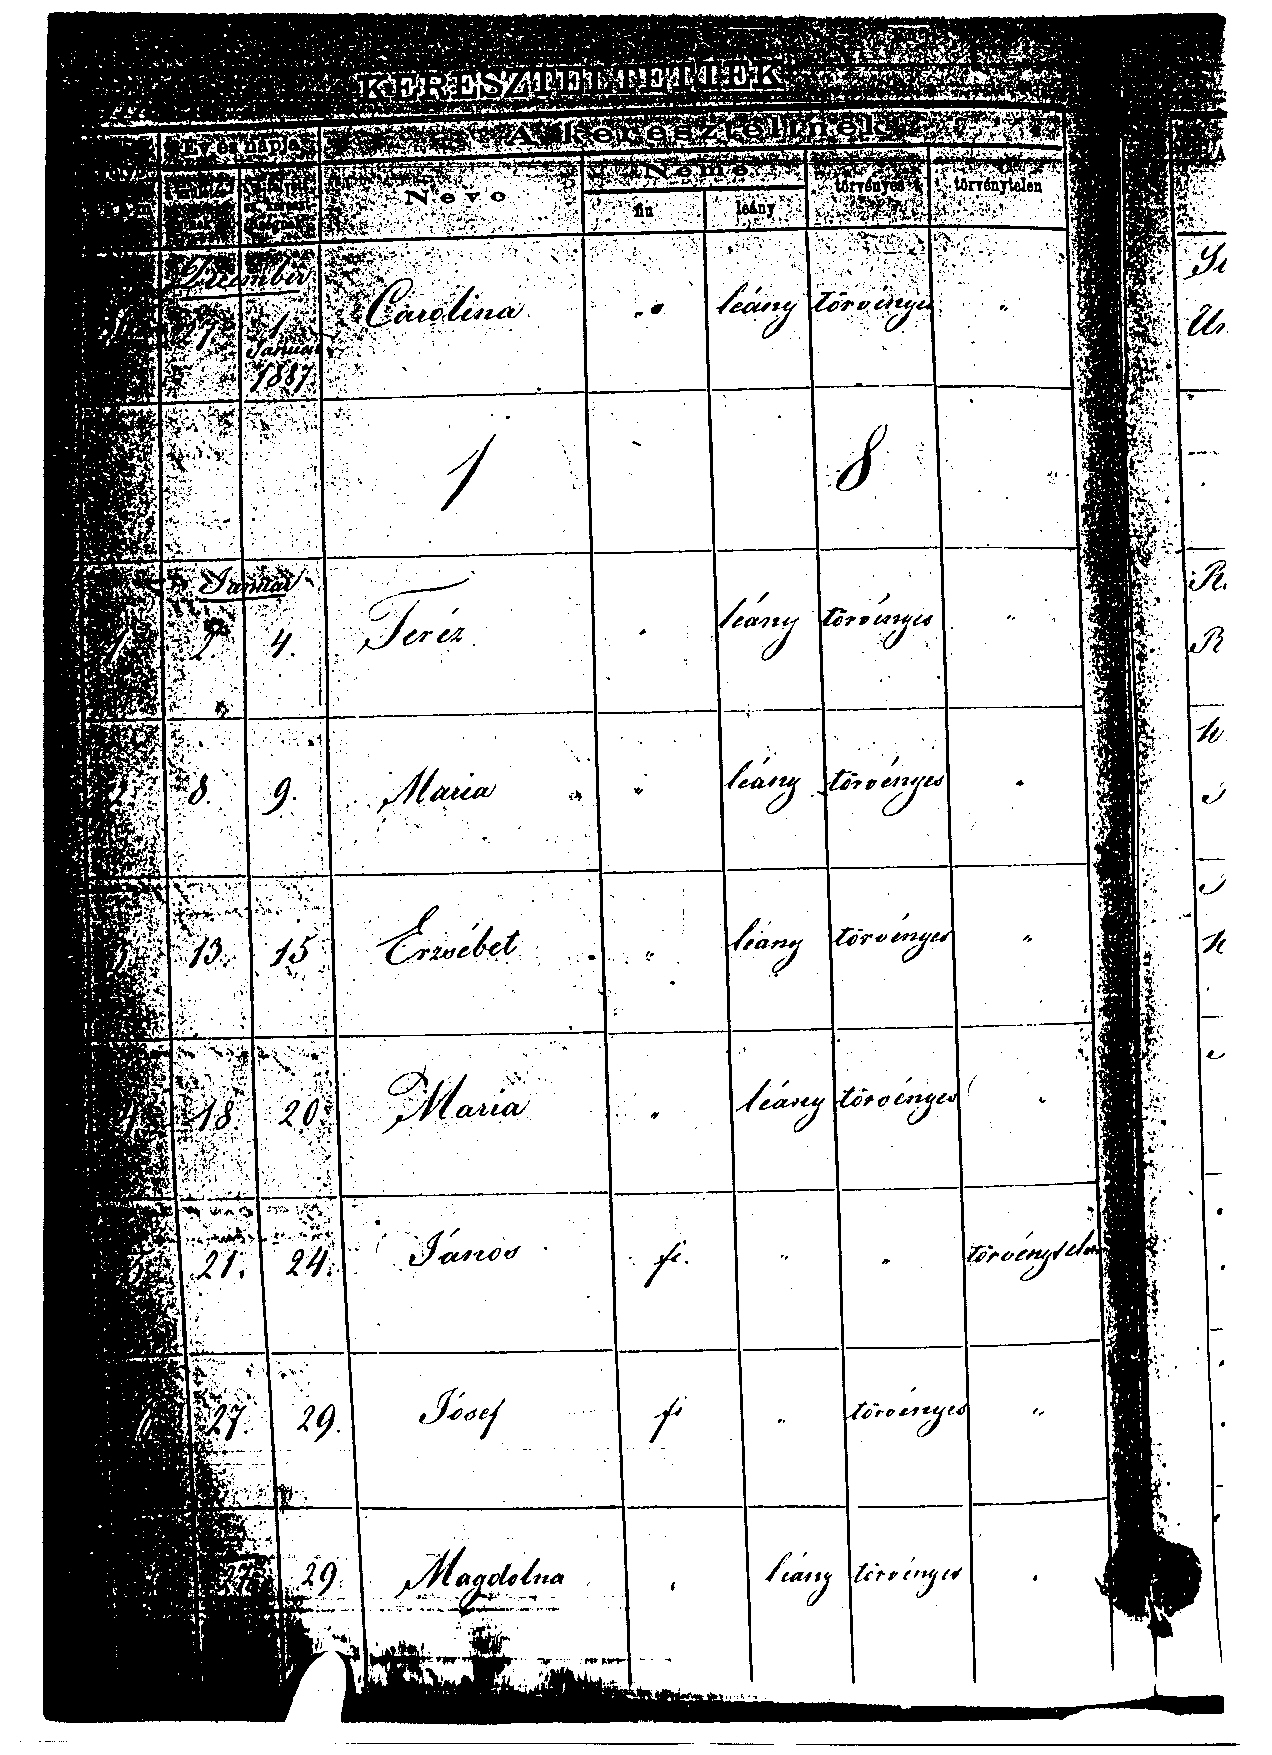 KERESZTELTETTEK
A kereszteltnek
Év és napja
Neve
Neme
törvényes
törvénytelen
fiu
leány
December
27. 1 Carolina " leány törvényes "
Januar
1887
1 8
Januar
1 2. 4. Teréz " leány törvényes "
2. 8. 9. Maria " leány törvényes "
3. 13. 15 Erzsébet " leány törvényes "
4. 18. 20. Maria " leány törvényes "
5. 21. 24. János fi. " " törvénytelen
6. 27. 29. Jósef fi " törvényes "
27. 29. Magdolna " leány törvényes "